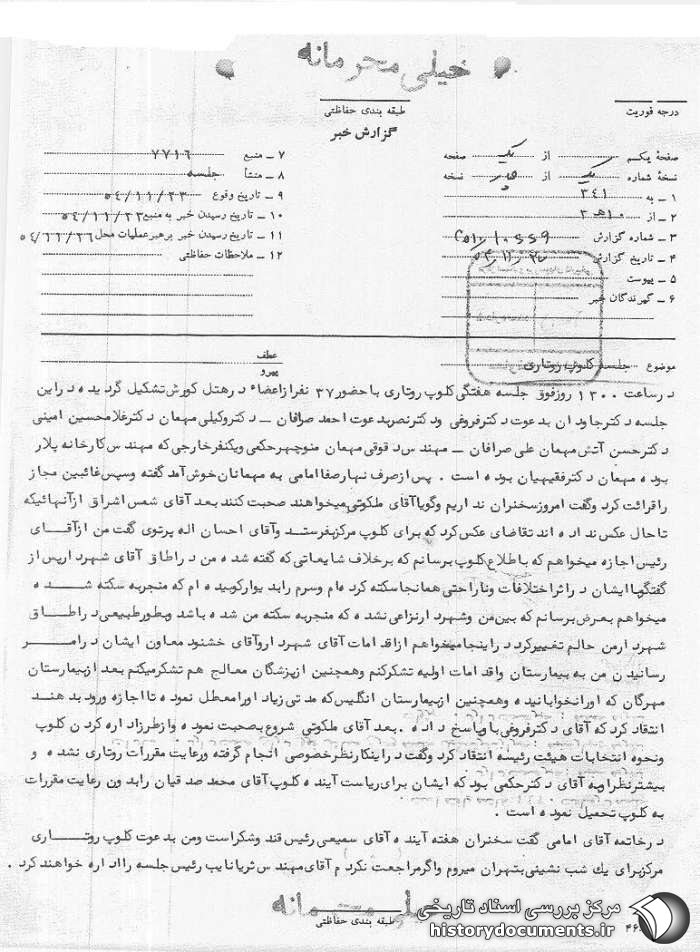 خیلی محرمانه
درجه فوریت
طبقه بندی حفاظتی
گزارش خبر
صفحهٔ یکم از یک صفحه
نسخهٔ شماره یک از نسخه
۱ ـ به ۳۴۱
۲ ـ از ۱۰هـ۳
۳ ـ شماره گزارش
۴ ـ تاریخ گزارش
۵ ـ پیوست
۶ ـ گیرندگان خبر
۷ ـ منبع ۷۷۱۶
۸ ـ منشأ جلسه
۹ ـ تاریخ وقوع ۵۴/۱۱/۲۳
۱۰ ـ تاریخ رسیدن خبر به منبع ۵۴/۱۱/۲۳
۱۱ ـ تاریخ رسیدن خبر برهبر عملیات محل ۵۴/۱۱/۲۶
۱۲ ـ ملاحظات حفاظتی
موضوع جلسه کلوپ روتاری
عطف
پیرو
در ساعت ۱۳۰۰ روز فوق جلسه هفتگی کلوپ روتاری با حضور ۳۷ نفر از اعضاء در هتل کورش تشکیل گردیده در این
جلسه دکتر جاودان بدعوت دکتر فروغی ودکتر نصر بدعوت احمد صرافان ـ دکتر وکیلی مهمان دکتر غلامحسین امینی
دکتر حسن آتش مهمان علی صرافان ـ مهندس ذوقی مهمان منوچهر حکمی ویکنفر خارجی که مهندس کارخانه پلار
بوده مهمان دکتر فقیهیان بوده است . پس از صرف نهار صفا امامی به مهمانان خوش آمد گفته وسپس غائبین مجاز
را قرائت کرد وگفت امروز سخنران نداریم وگویا آقای ملکوتی میخواهند صحبت کنند بعد آقای شمس اشراق از آنهائیکه
تاحال عکس نداده اند تقاضای عکس کرد که برای کلوپ مرکز بفرستد وآقای احسان اله پرتوی گفت من از آقای
رئیس اجازه میخواهم که باطلاع کلوپ برسانم که برخلاف شایعاتی که گفته شده من در اطاق آقای شهردار پس از
گفتگو با ایشان در اثر اختلافات وناراحتی همانجا سکته کرده ام وسرم را بدیوار کوبیده ام که منجر به سکته شده
میخواهم بعرض برسانم که بین من وشهردار نزاعی نشده که منجر به سکته من شده باشد وبطور طبیعی در اطاق
شهردار من حالم تغییر کرد در اینجا میخواهم از اقدامات آقای شهردار وآقای خشنود معاون ایشان در امر
رسانیدن من به بیمارستان واقدامات اولیه تشکر کنم وهمچنین از پزشگان معالج هم تشکر میکنم بعد از بیمارستان
مهرگان که او را نخوابانیده وهمچنین از بیمارستان انگلیس که مدتی زیاد او را معطل نموده تا اجازه ورود بدهند
انتقاد کرد که آقای دکتر فروغی باو پاسخ داده . بعد آقای ملکوتی شروع بصحبت نموده واز طرز اداره کردن کلوپ
ونحوه انتخابات هیئت رئیسه انتقاد کرد وگفت در اینکار نظر خصوصی انجام گرفته ورعایت مقررات روتاری نشده و
بیشتر نظر او به آقای دکتر حکمی بود که ایشان برای ریاست آینده کلوپ آقای محمد صدقیان را بدون رعایت مقررات
به کلوپ تحمیل نموده است .
در خاتمه آقای امامی گفت سخنران هفته آینده آقای سمیعی رئیس قند وشکر است ومن بدعوت کلوپ روتاری
مرکز برای یك شب نشینی بتهران میروم واگر مراجعت نکردم آقای مهندس ثریا نایب رئیس جلسه را اداره خواهند کرد .
خیلی محرمانه
طبقه بندی حفاظتی
مرکز بررسی اسناد تاریخی
historydocuments.ir